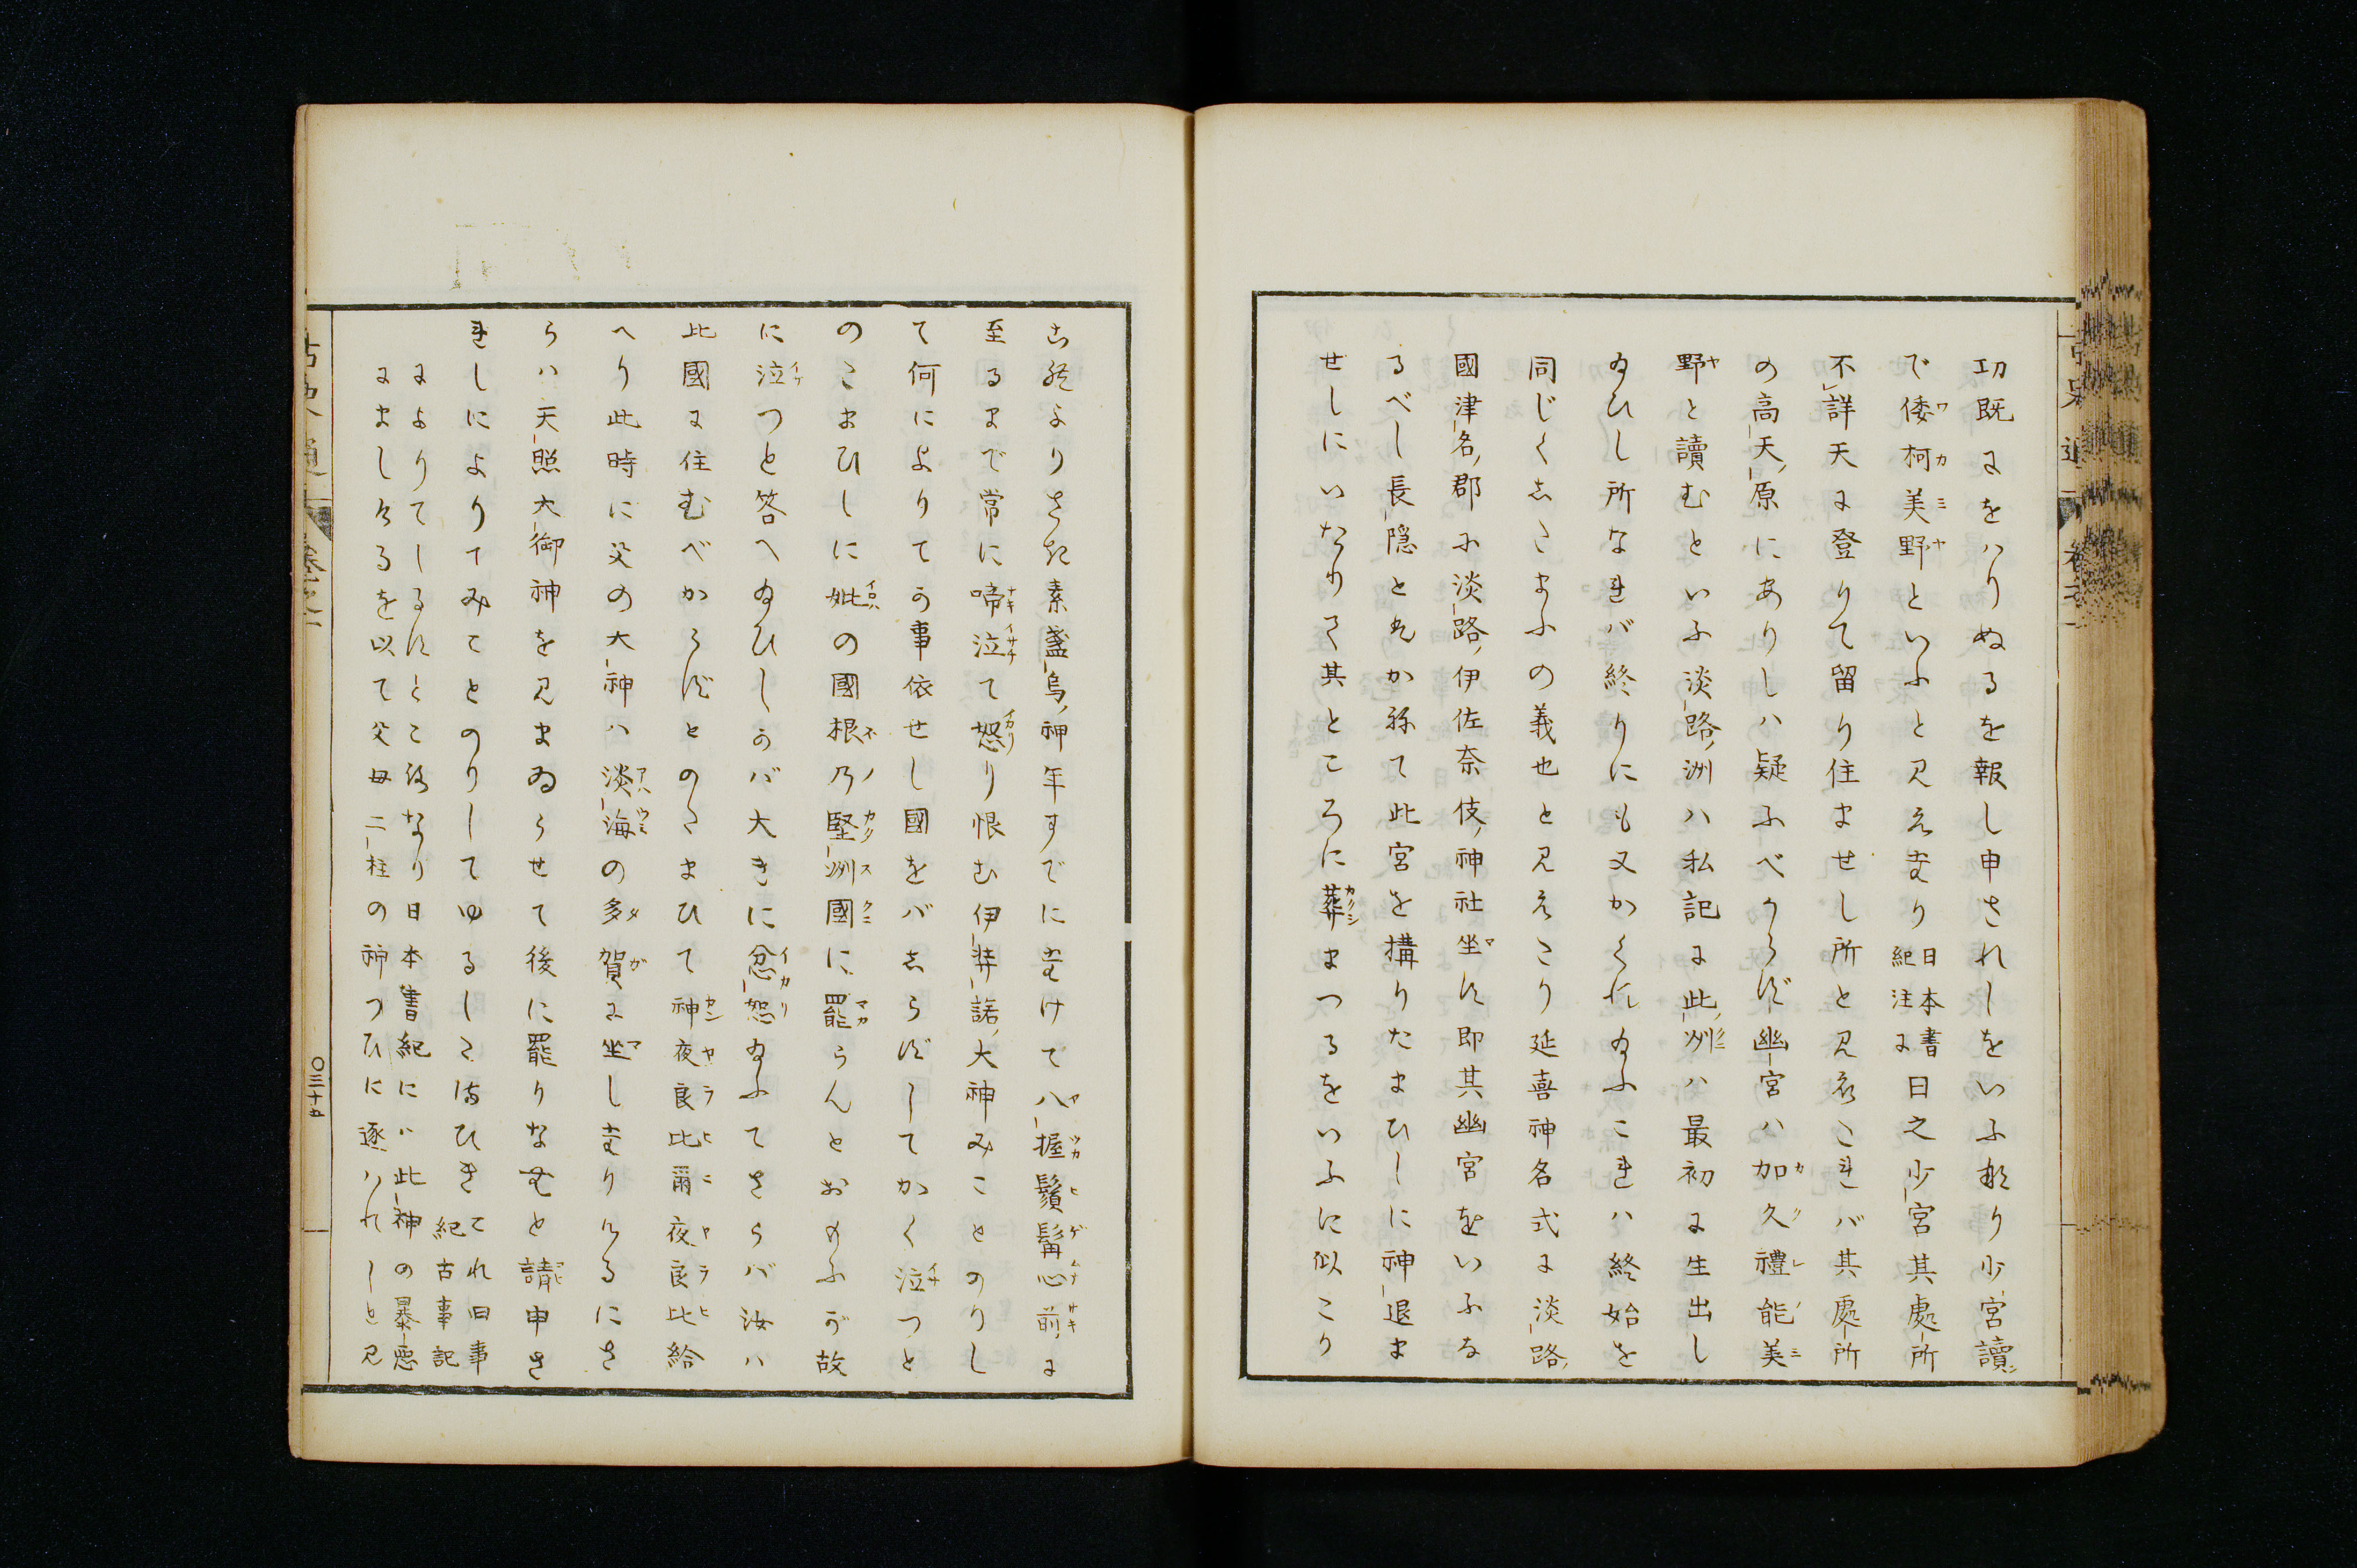 功既にをハりぬるを報し申されしをいふ也り少宮讀
で倭柯美野といふと見えたり日本書紀注に日之少宮其處所
不詳天に登りて留り住ませし所と見ゆこれバ其處所
の高天原にありしハ疑ふべからず幽宮ハ加久禮能美
野と讀むといふ淡路洲ハ私記に此洲ハ最初に生出し
給ひし所なれバ終りにも又かくれ給ふこれハ終始を
同じくしたまふの義也と見えたり延喜神名式に淡路
國津名郡に淡路伊佐奈伎神社坐す即其幽宮をいふな
るべし長隠と兼かねて此宮を構りたまひしに神退ま
せしにいたりて其ところに葬まつるをいふに似たり
これよりさき素盞烏神年すでにたけて八握鬚髯心前に
至るまで常に啼泣て怒り恨む伊弉諾大神みことのりし
て何によりてか事依せし國をバしらずしてかく泣つと
のたまひしに妣の國根乃堅洲國に罷らんとおもふが故
に泣つと答へ給ひしかバ大きに忿怨給ふてさらバ汝ハ
此國に住むべからずとのたまひて神夜良比爾夜良比給
へり此時に父の大神ハ淡海の多賀に坐しまりけるにさ
らハ天照大御神を見まゐらせて後に罷りなむと請申さ
れしによりてみことのりしてゆるしたまひきこれ旧事紀古事記
によりてしるすところなり日本書紀にハ此神の暴悪
にましけるを以て父母二柱の神つひに逐ハれしと見
古史通
卷之一
〇三十五